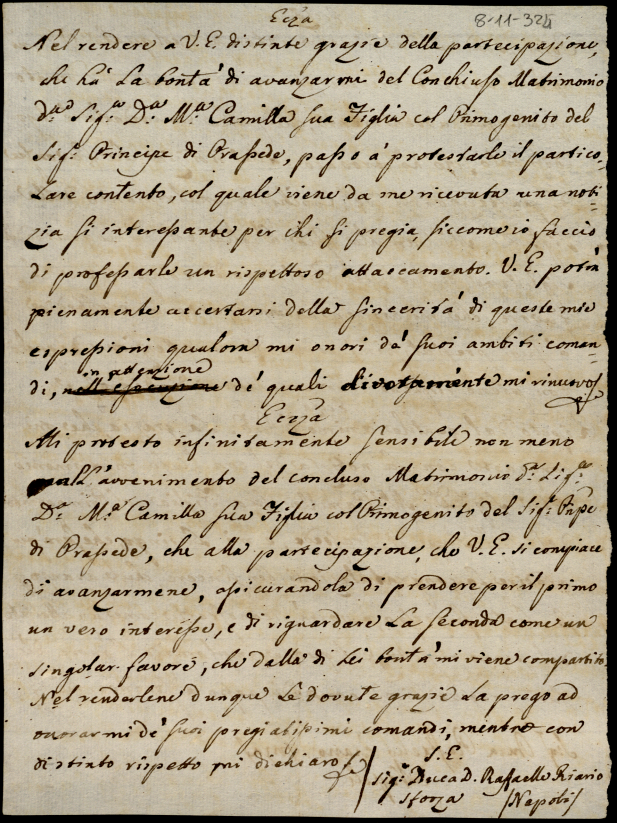 Ecza
8-11-32
Nel rendere a V. E. distinte grazie della partecipazione,
che hà la bontà di avanzarmi del Conchiuso Matrimonio
Sig.ra D.a M.a Camilla sua Figlia col Primogenito del
Sig.r Principe di Prassede, passo à protestarle il partico-
lare contento, col quale viene da me ricevuta una noti-
zia sì interessante per chi si pregia, siccome io faccio
di professarle un rispettoso attaccamento. V. E. potrà
pienamente accertarsi della sincerità di queste mie
espressioni qualora mi onori de' suoi ambiti coman-
in attenzione
di, de' quali divotamente mi rinuovo/
Ecza
Mi protesto infinitamente sensibile non meno
all'avvenimento del concluso Matrimonio Sig.ra
D.a M.a Camilla sua Figlia col Primogenito del Sig.r Pnpe
di Prassede, che alla partecipazione, che V. E. si compiace
di avanzarmene, assicurandola di prendere per il primo
un vero interesse, e di riguardare la seconda come un
singolar favore, che dalla di Lei bontà mi viene compartito.
Nel renderlene dunque le dovute grazie la prego ad
onorarmi de' suoi pregiatissimi comandi, mentre con
distinto rispetto mi dichiaro/
S. E.
Sig.r Duca D. Raffaelle Riario
Sforza /Napoli/